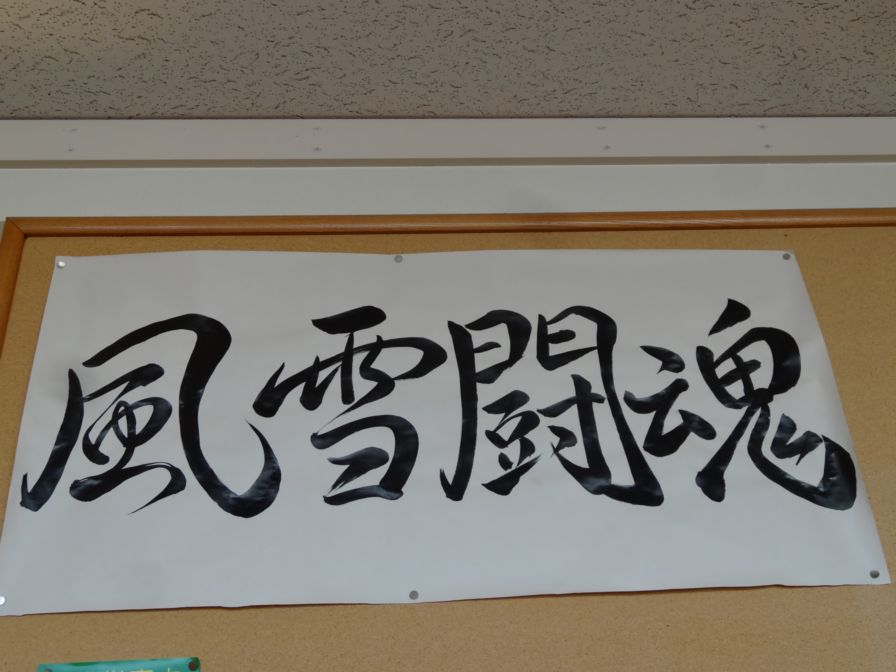 風雪闘魂